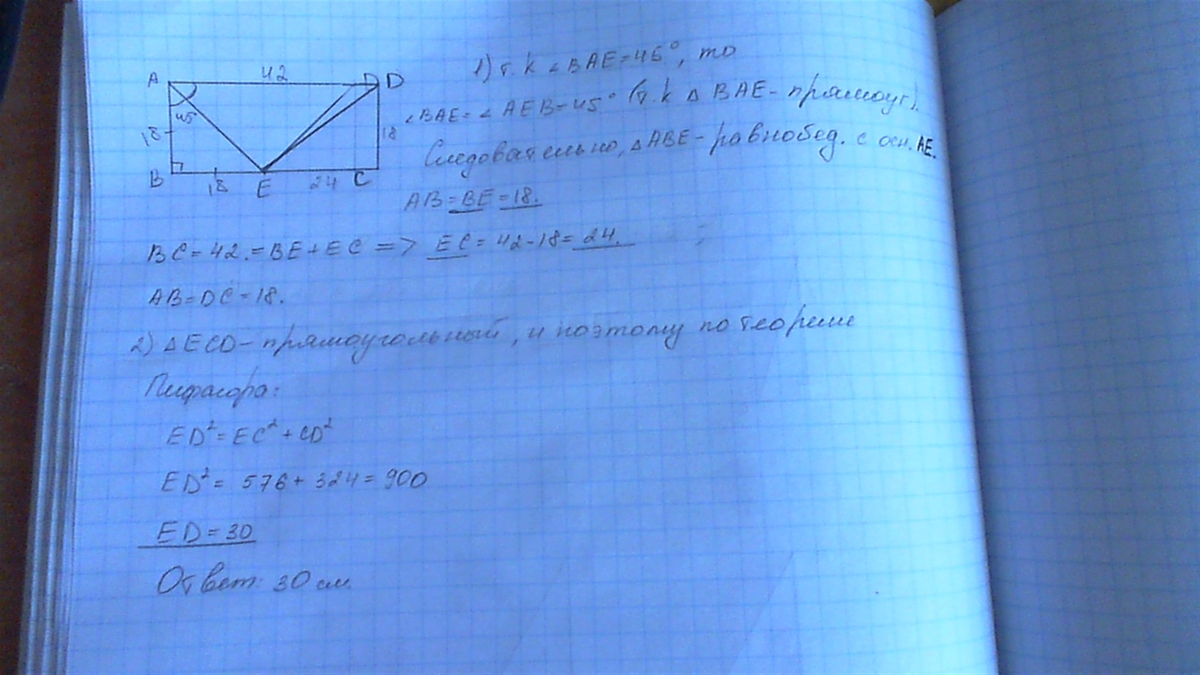 A 42 D D
45
18 18
B 18 E 24 C
1) т.к ∠BAE=45°, то
∠BAE=∠AEB=45° (т.к △ BAE- прямоуг).
Следовательно, △ABE-равнобед. с осн. AE.
AB=BE=18.
BC=42.=BE+EC => EC=42-18=24.
AB=DC=18.
2) △ECD-прямоугольный, и поэтому по теореме
Пифагора:
ED²=EC²+CD²
ED²= 576+324=900
ED=30
Ответ: 30 см